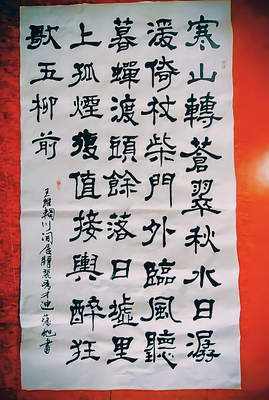 寒山轉蒼翠秋水日潺
湲倚杖柴門外臨風聽
暮蟬渡頭餘落日墟里
上孤煙復值接輿醉狂
歌五柳前
王維輞川閒居贈裴秀才迪 書